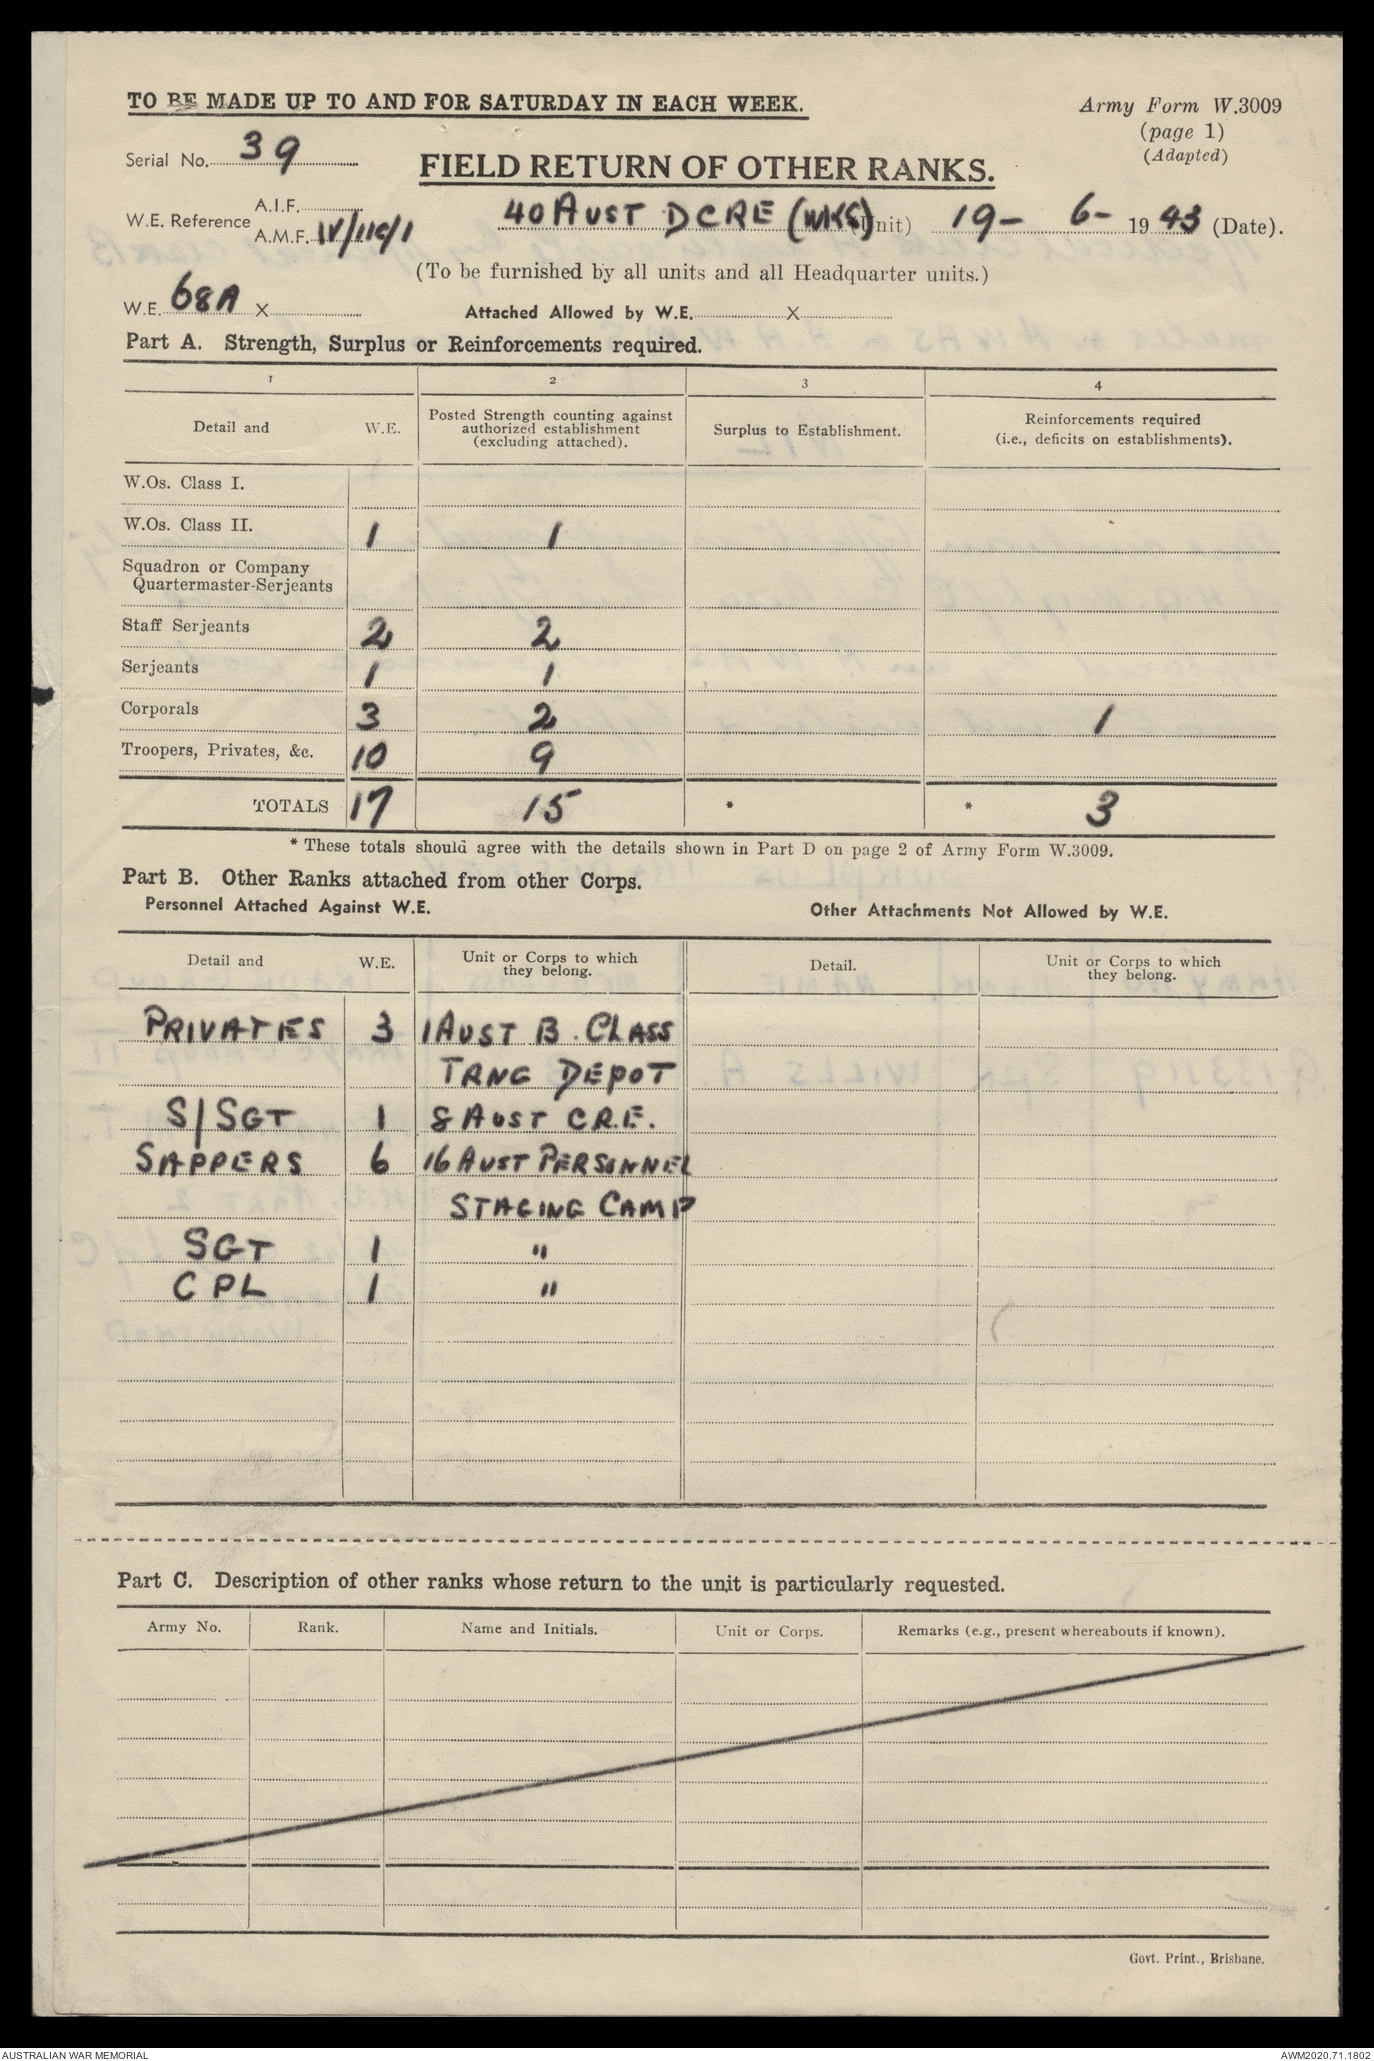 TO BE MADE UP TO AND FOR SATURDAY IN EACH WEEK.
Army Form W.3009
(page 1)
(Adapted)
Serial No. 39
FIELD RETURN OF OTHER RANKS.
W.E. Reference A.I.F.
A.M.F. IV/116/1
40 AUST DCRE (WKS) (Unit) 19- 6- 1943 (Date).
(To be furnished by all units and all Headquarter units.)
W.E. 68A X Attached Allowed by W.E. X
Part A. Strength, Surplus or Reinforcements required.
1 2 3 4
Detail and W.E. Posted Strength counting against authorized establishment (excluding attached). Surplus to Establishment. Reinforcements required (i.e., deficits on establishments).
W.Os. Class I.
W.Os. Class II. 1 1
Squadron or Company
Quartermaster-Serjeants
Staff Serjeants 2 2
Serjeants 1 1
Corporals 3 2 1
Troopers, Privates, &c. 10 9
TOTALS 17 15 * * 3
* These totals should agree with the details shown in Part D on page 2 of Army Form W.3009.
Part B. Other Ranks attached from other Corps.
Personnel Attached Against W.E. Other Attachments Not Allowed by W.E.
Detail and W.E. Unit or Corps to which they belong. Detail. Unit or Corps to which they belong.
PRIVATES 3 1 AUST B. CLASS
TRNG DEPOT
S/SGT 1 8 AUST C.R.E.
SAPPERS 6 16 AUST PERSONNEL
STAGING CAMP
SGT 1 "
CPL 1 "
Part C. Description of other ranks whose return to the unit is particularly requested.
Army No. Rank. Name and Initials. Unit or Corps. Remarks (e.g., present whereabouts if known).
Govt. Print., Brisbane.
AUSTRALIAN WAR MEMORIAL AWM2020.71.1802